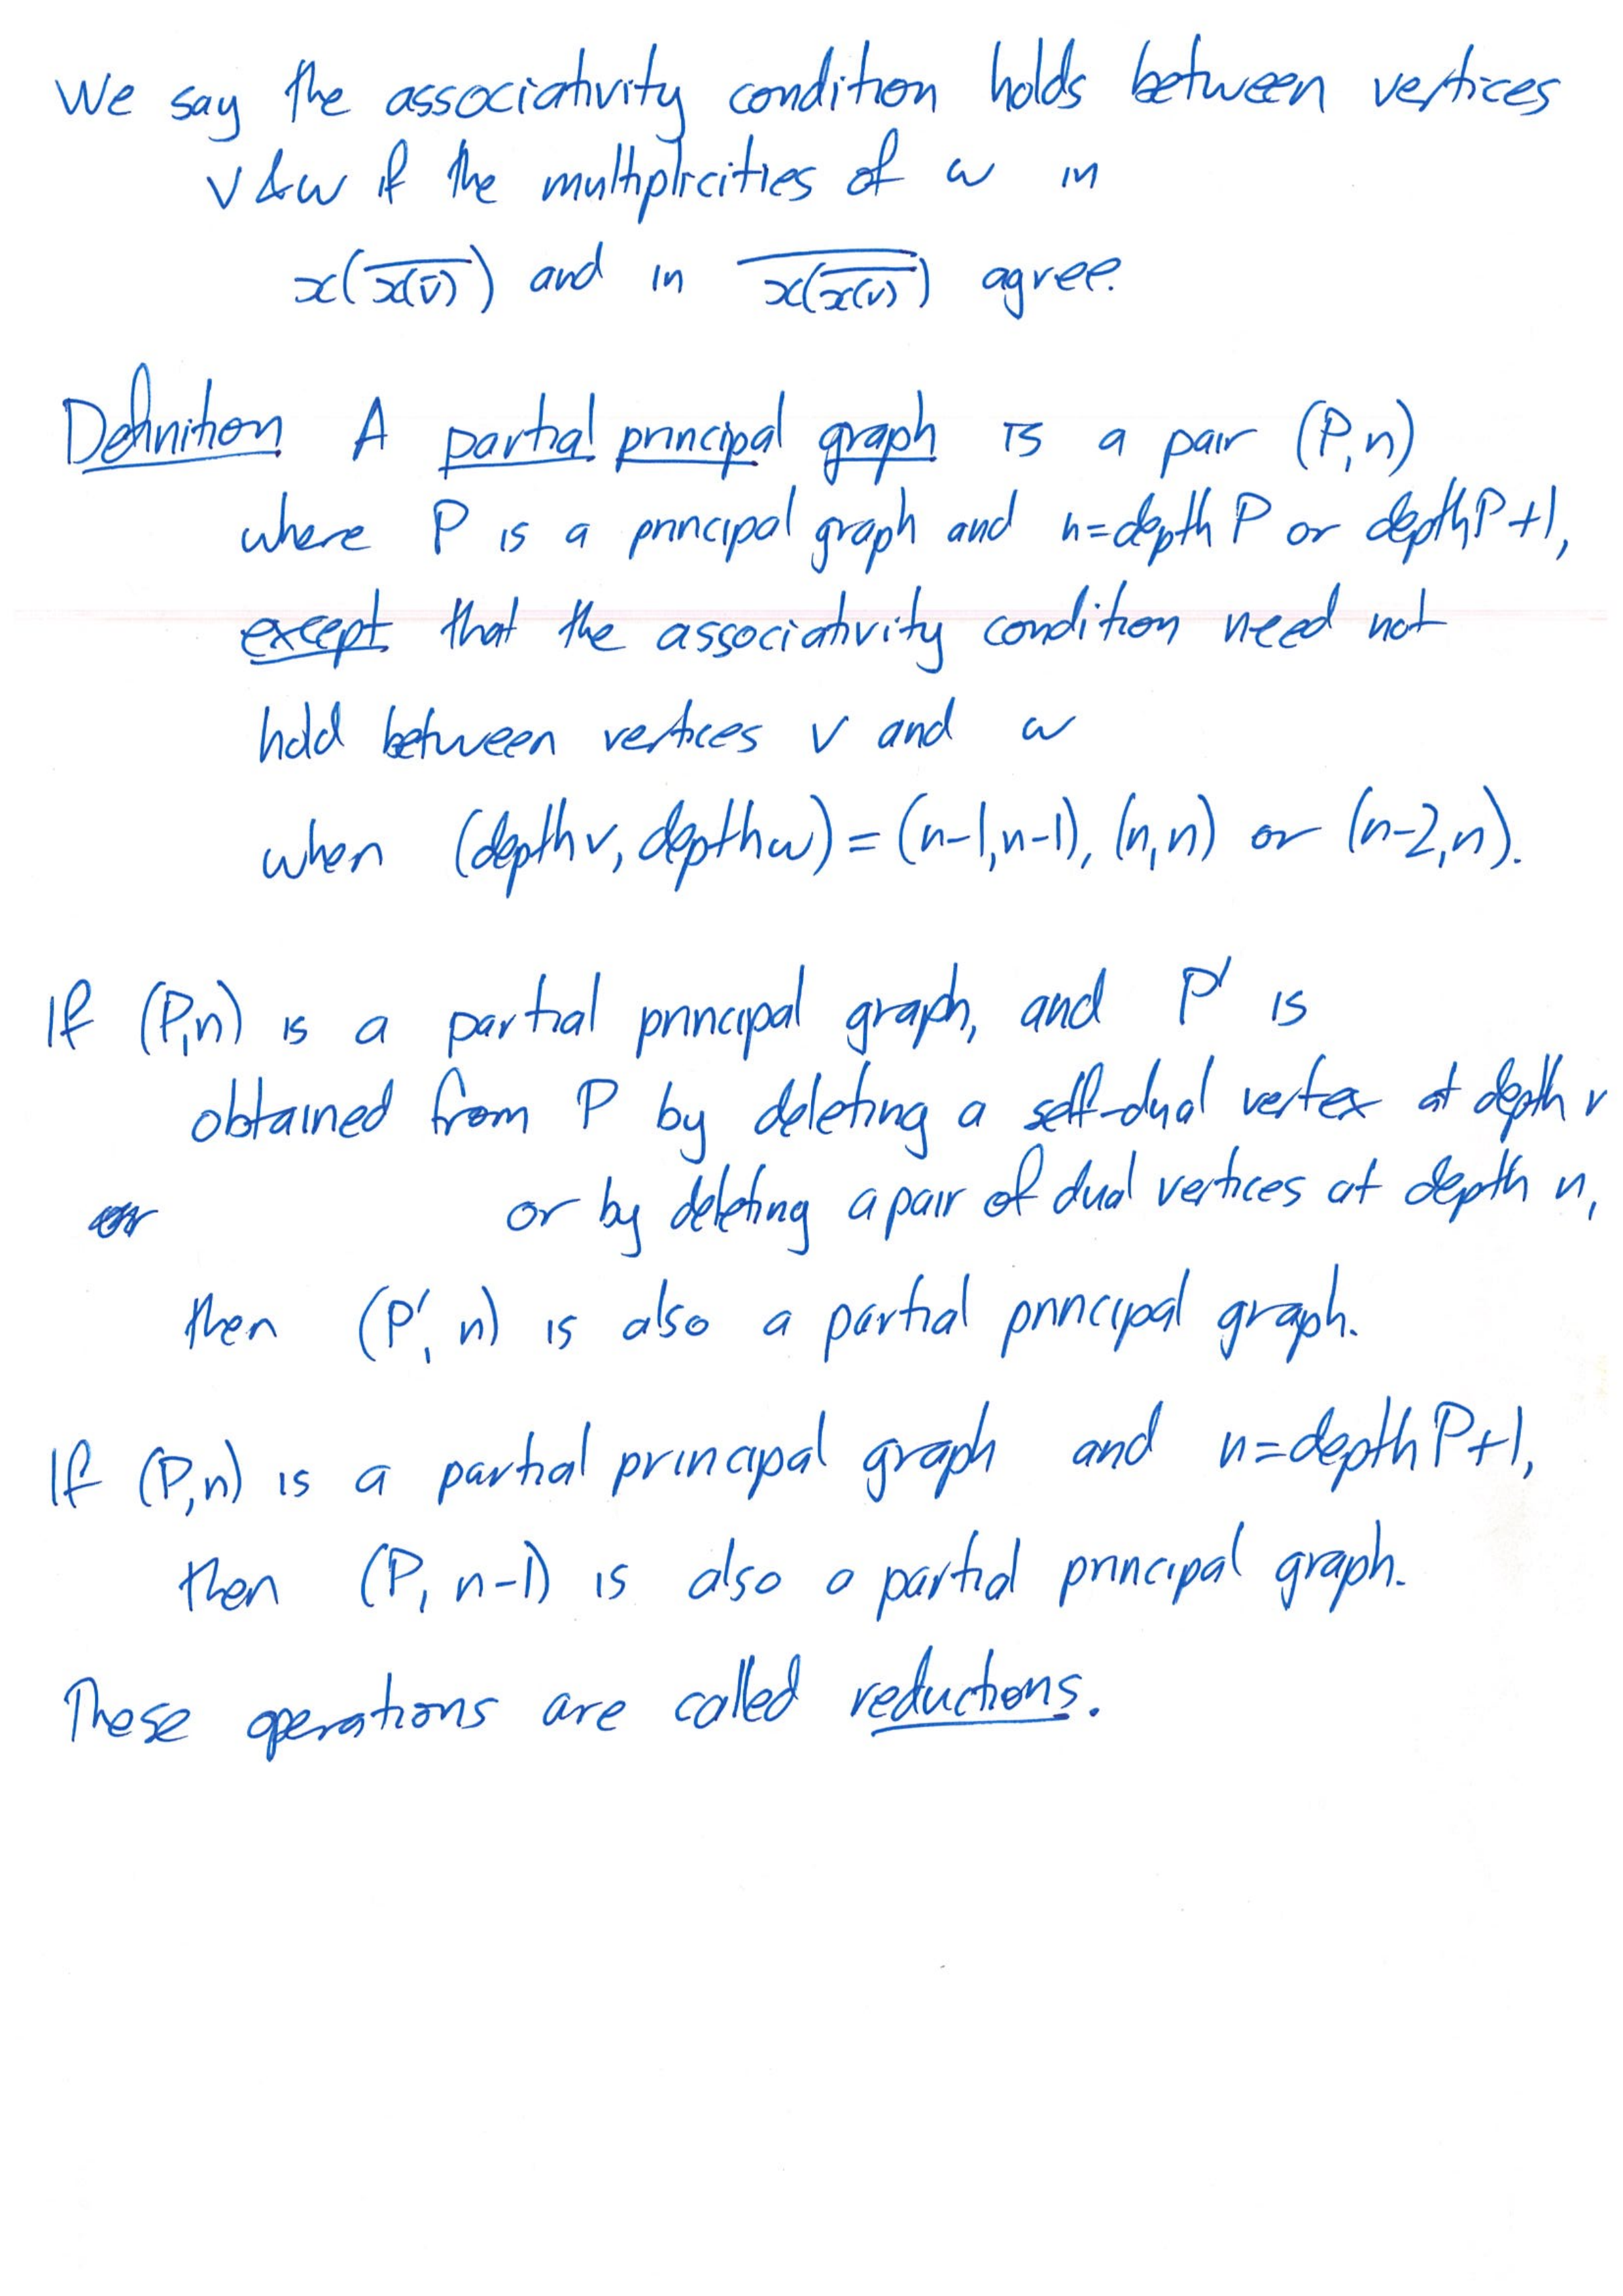 We say the associativity condition holds between vertices
v & w if the multiplicities of w in
x(\overline{x(\bar{v})}) and in \overline{x(\overline{x(v)})} agree.
Definition A partial principal graph is a pair (P,n)
where P is a principal graph and n=depth P or depth P+1,
except that the associativity condition need not
hold between vertices v and w
when (depth v, depth w) = (n-1,n-1), (n,n) or (n-2,n).
If (P,n) is a partial principal graph, and P' is
obtained from P by deleting a self-dual vertex at depth n
or by deleting a pair of dual vertices at depth n,
then (P', n) is also a partial principal graph.
If (P,n) is a partial principal graph and n=depth P+1,
then (P, n-1) is also a partial principal graph.
These operations are called reductions.